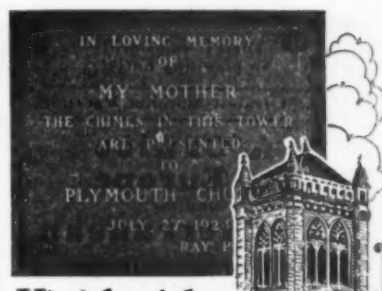 IN LOVING MEMORY
OF
MY MOTHER
THE CHIMES IN THIS TOWER
ARE PRESENTED
TO
PLYMOUTH
JULY 27
RAY